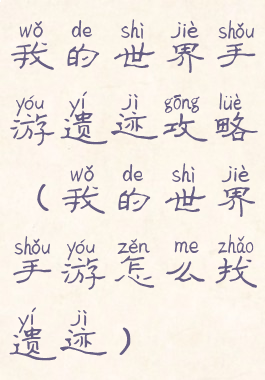 wǒ de shì jiè shǒu
我的世界手
yóu yí jì gōng lüè
游遗迹攻略
wǒ de shì jiè
（我的世界
shǒu yóu zěn me zhǎo
手游怎么找
yí jì
遗迹）